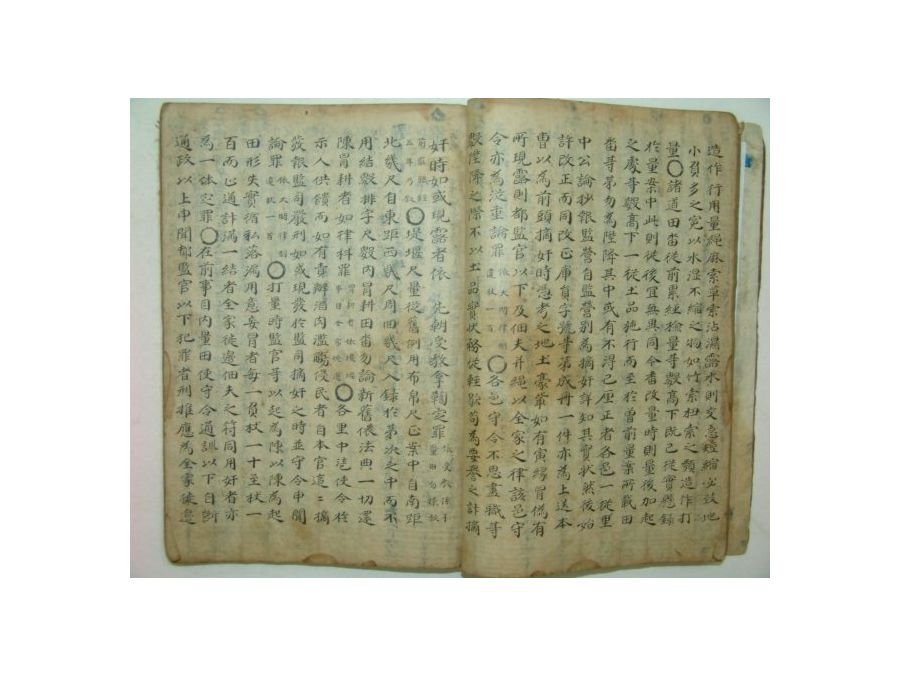 造作行用量繩麻索草索沾濕露水則交急短縮必致地
小負多之寃以水湿不縮之物如竹索杻索之類造作打
量○諸道田畓從前累經檢量等數高下旣已從實懸録
於量案中此則從後宜無異同今番改量時則量後加起
之處等數高下一從土品施行而至於曾前量案所載田
畓等第勿為陞降其中或有不得已厘正者各邑一從里
中公論抄報監營自監營別為摘奸詳知其實狀然後始
許改正而同改正庫負字號等第成冊一件亦為上送本
曹以為前頭摘奸時憑考之地土豪輩如有寅緣冒僞有
所現露則都監官以下及佃夫并繩以全家之律該邑守
令亦為從重論罪○各邑守令不思盡職等
數陞降之際不以土品實狀務從輕歇苟為要譽之計摘
奸時如或現露者依 先朝受教拿鞫定罪
○堤堰尺量從舊例用布帛尺正案中自南距
北幾尺自東距西幾尺周回幾尺入録於第次之中而不
用結數排字尺數內冒耕田畓勿論新舊依法典一切還
陳冒耕者如律科罪○各里中使令於
示人供饋而如有責辦酒肉濫觴侵民者自本官這這摘
發報監司嚴刑如或現發於監司摘奸之時並守令申聞
論罪○打量時監官等以起為陳以陳為起
田形失實循私落漏用意妄冒者每一負杖一十至杖一
百而止通計滿一結者全家徙邊佃夫之符同用奸者亦
為一體定罪○在前事目內量田使守令通訓以下自斷
通政以上申聞都監官以下犯罪者刑推應為全家徙邊